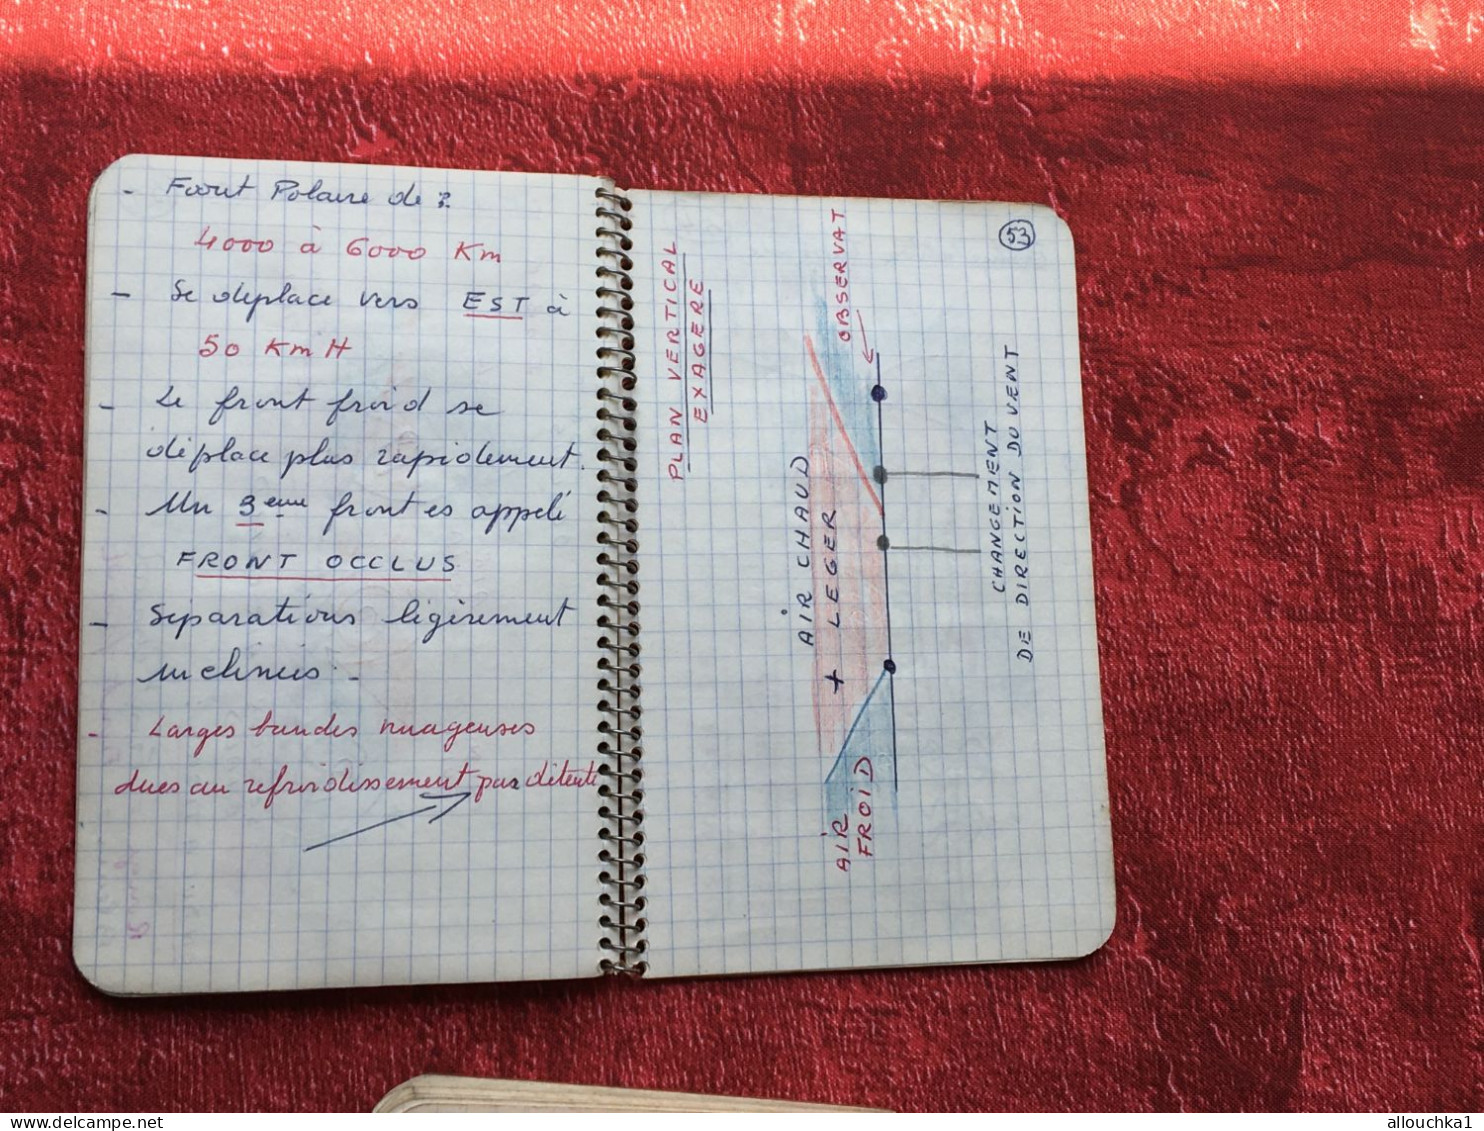 - Front Polaire de :
4000 à 6000 Km
- Se déplace vers EST à
50 KmH
- Le front froid se
déplace plus rapidement.
- Un 3eme front es appelé
FRONT OCCLUS
- Séparations légèrement
inclinées -
- Larges bandes nuageuses
dues au refroidissement par détente
53
PLAN VERTICAL
EXAGERE
OBSERVAT
AIR CHAUD
+ LEGER
AIR
FROID
CHANGEMENT
DE DIRECTION DU VENT
allouchka1